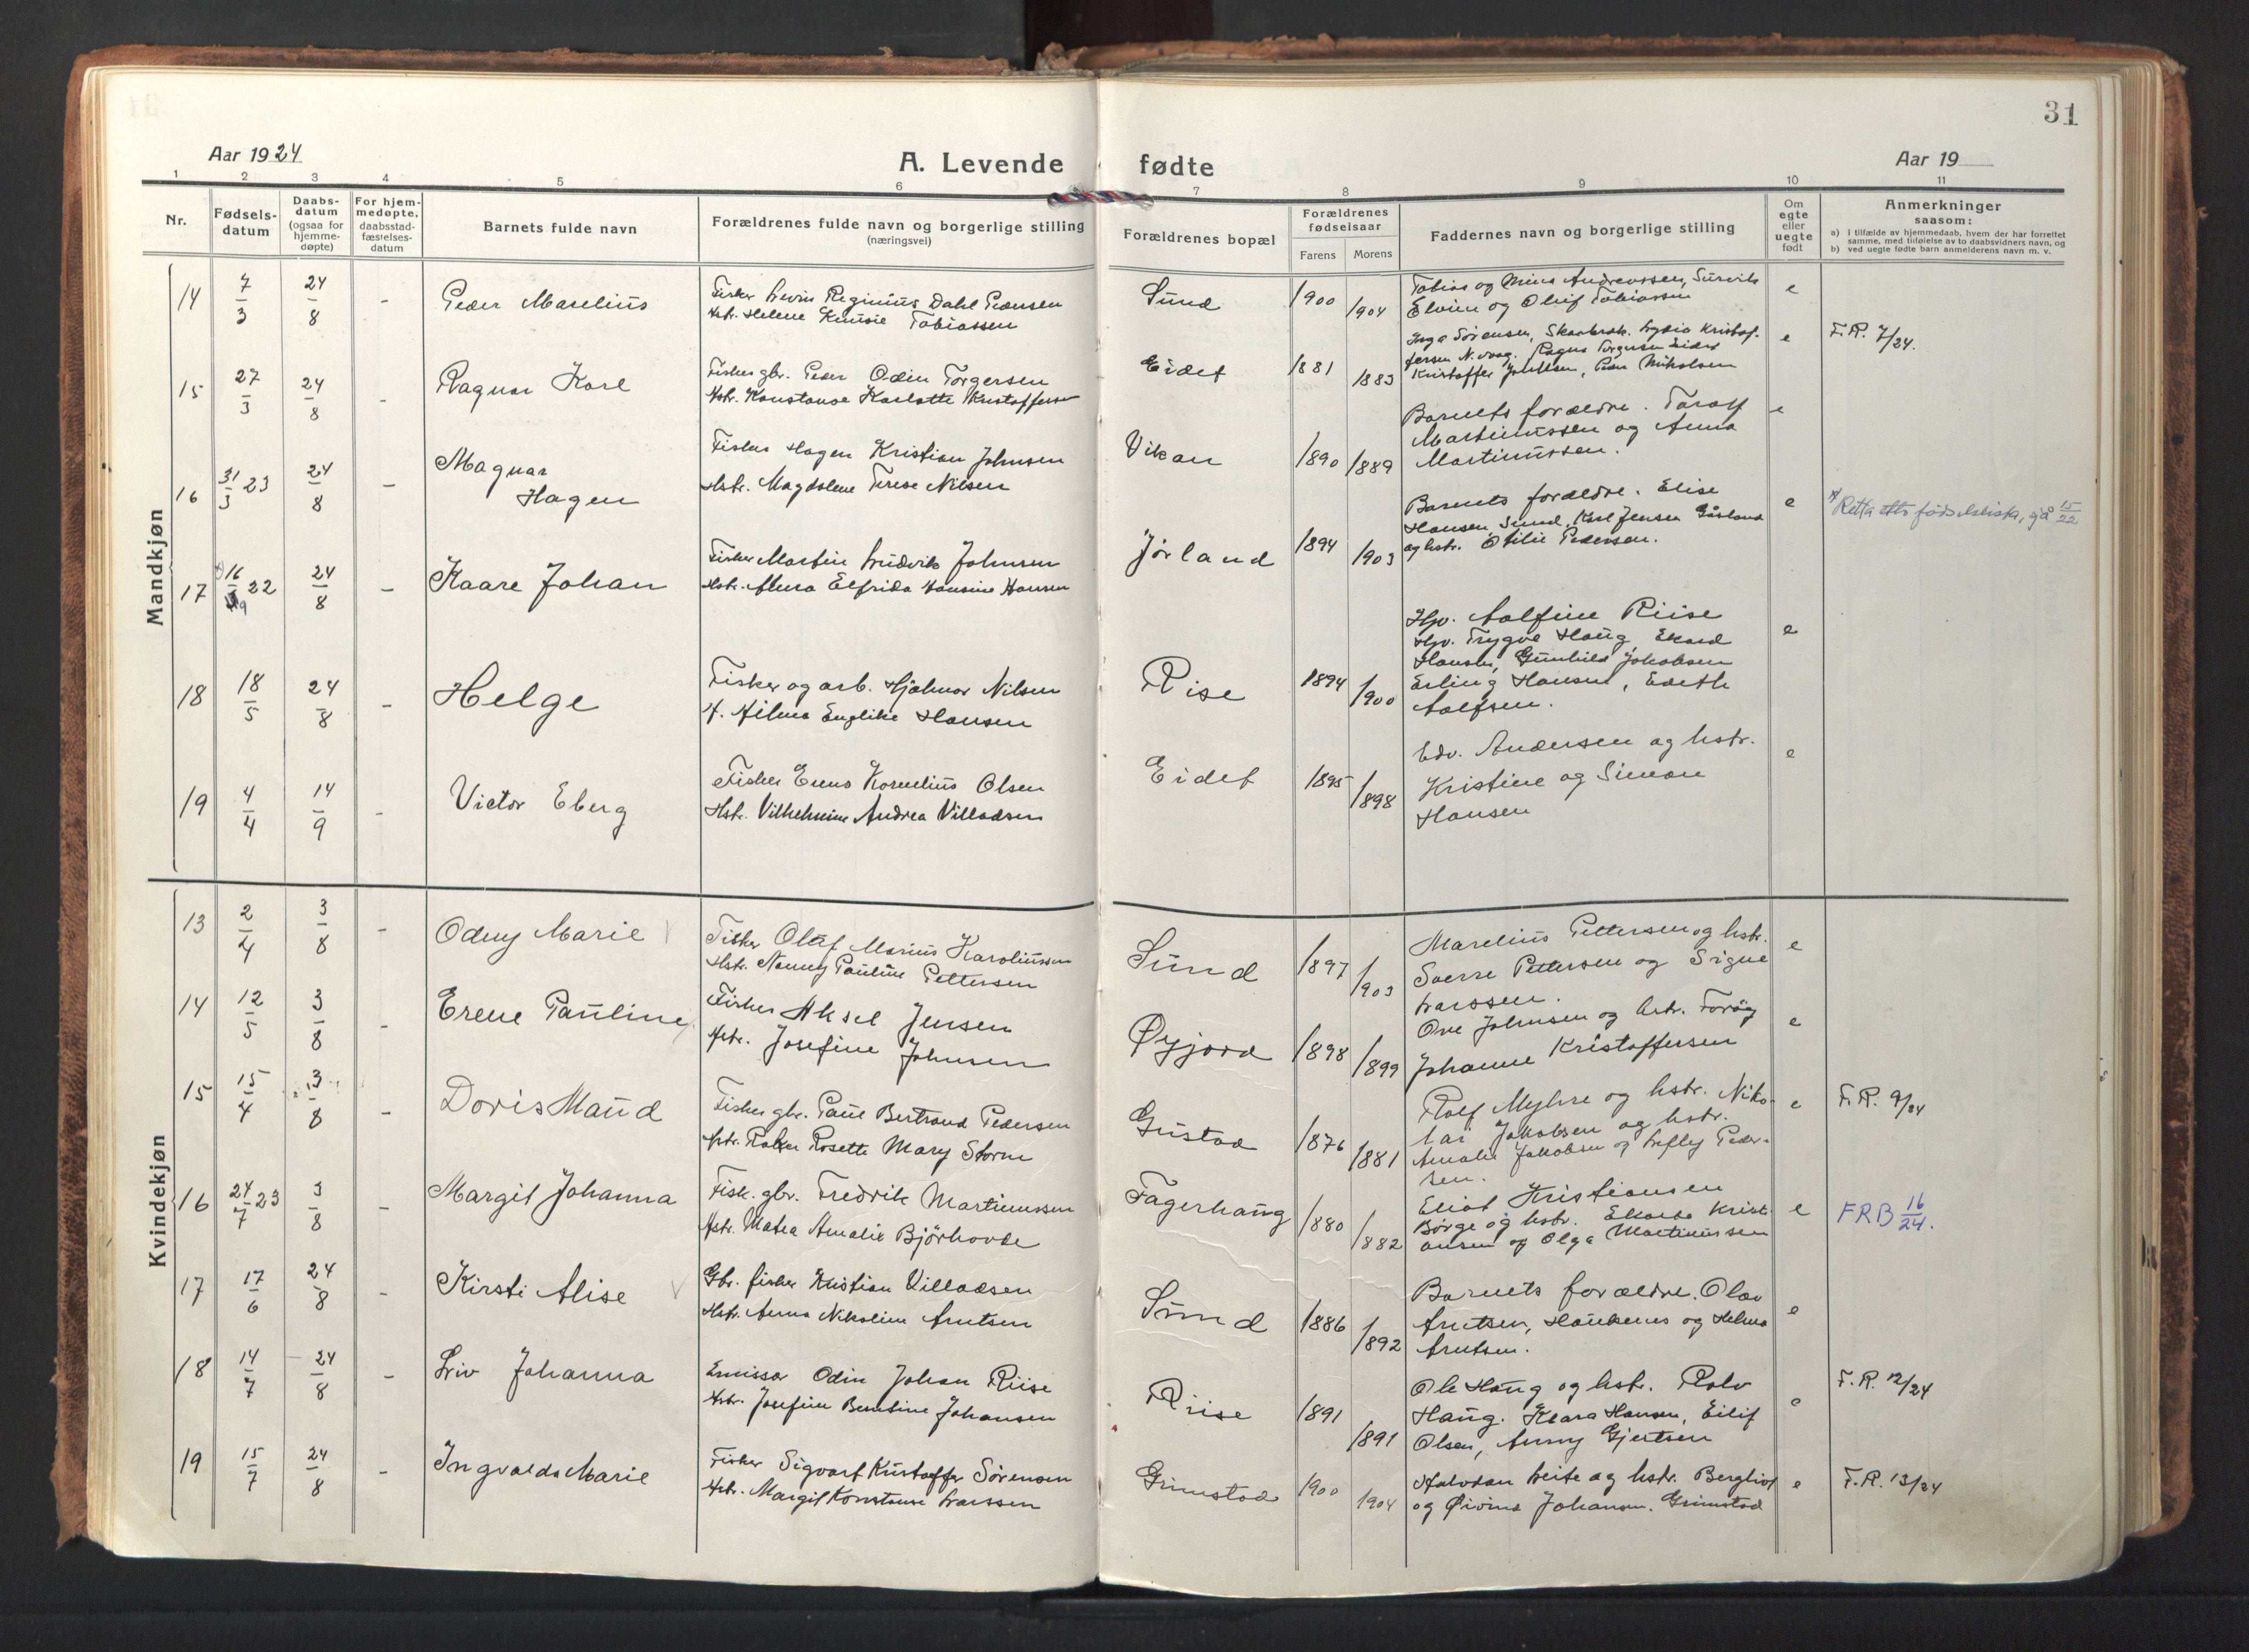 31
Aar 1924
A. Levende fødte
Aar 19
1 2 3 4 5 6 7 8 9 10 11
Nr.
Fødsels-
datum
Daabs-
datum
(ogsaa for
hjemme-
døpte)
For hjem-
medøpte,
daabsstad-
fæstelses-
datum
Barnets fulde navn
Forældrenes fulde navn og borgerlige stilling
(næringsvei)
Forældrenes bopæl
Forældrenes
fødselsaar
Farens
Morens
Faddernes navn og borgerlige stilling
Om
egte
eller
uegte
født
Anmerkninger
saasom:
a) i tilfælde av hjemmedaab, hvem der har forrettet
samme, med tilføielse av to daabsvidners navn, og
b) ved uegte fødte barn anmelderens navn m. v.
Mandkjøn
14 7/3 24/8 - Peder Marelius
Fisker Reginius Dahl
Hstr. Helene Tobiassen
Sund 1900 1904
Tobias og Andreassen,
og Tobiassen
e
15 27/3 24/8 - Ragnar Karl
Fisker gbr. Peder Odin Torgersen
Hstr. Konstanse Karlotte Kristoffersen
Eidet 1881 1883
Inga Sørensen, Skarbrak.
Ragna Torgersen Eidet
Kristoffer
e F.R. 7/24.
16 31/3 23 24/8 - Magnar
Hagen
Fisker Hagen Kristian Johnsen
Hstr. Magdalene Terese Nilsen
Vikan 1890 1889
Barnets forældre. Toralf
Martinussen og Anna
Martinussen.
e
17 16/9 22 24/8 - Kaare Johan
Fisker Martin Ludvik Johnsen
Hstr. Alma Elfrida Hansine Hansen
Jørland 1894 1903
Barnets forældre. Elise
Hansen Sund. Karl Jensen
og hstr. Otilie Pedersen.
e Retta etter fødselslista, sjå 15/22
18 18/5 24/8 - Helge
Fisker og arb. Hjalmar Nilsen
H. Hilma Englike Hansen
Rise 1894 1900
Hpv. Aalfine Riise
Hpv. Trygve Haug,
Hansen, Gunhild Jakobsen
Erling Hansen, Edith
Aalfsen.
e
19 4/4 14/9 - Victor Eberg
Fisker Enus Kornelius Olsen
Hstr. Vilhelmine Andrea Villadsen
Eidet 1895 1898
Edv. Andersen og hstr.
Kristine og Simon
Hansen
e
Kvindekjøn
13 2/4 3/8 - Odny Marie
Fisker Olaf Marius Karoliussen
Hstr. Nanny Pauline Pettersen
Sund 1897 1903
Marelius Pettersen og hstr.
Sverre Pettersen og Signe
Larssen.
e
14 12/5 3/8 - Erene Pauline
Fisker Aksel Jensen
Hstr. Josefine Johnsen
Øyjord 1898 1899
Ove Johnsen og hstr. Torøy
Johanne Kristoffersen
e
15 15/4 3/8 - Doris Maud
Fisker gbr. Paul Bertrand Pedersen
Hstr. Rosette Mary Storm
Grustad 1876 1881
Rolf Myhre og hstr. Niko-
lai Jakobsen og hstr.
Amalie Jakobsen og Peder-
sen.
e F.R. 9/24
16 24/7 23 3/8 - Margit Johanna
Fisk. gbr. Fredrik Martinussen
Hstr. Matea Amalie Bjørhovde
Fagerhaug 1880 1882
Eliot Kristiansen
Børge og hstr. Kristi-
ansen og Olga Martinussen
e FRB 16/24.
17 17/6 24/8 - Kirsti Alise
Gbr. fisker Kristian Villadsen
Hstr. Anna Nikoline Arntsen
Sund 1886 1892
Barnets forældre. Olav
Arntsen, Haukenes og Helma
Arntsen.
e
18 14/7 24/8 - Liv Johanna
Emissær Odin Johan Riise
Hstr. Josefine Berntine Johansen
Riise 1891 1891
Ole Haug og hstr. Rolv
Haug. Klara Hansen, Eilif
Olsen, Anny Gjertsen
e F.R. 12/24
19 15/7 24/8 - Ingvalda Marie
Fisker Sigvart Kristoffer Sørensen
Hstr. Margit Konstanse Larssen
Grimstad 1900 1904
Halvdan Leite og hstr. Bergliot
og Øivind Johansen. Grimstad
e F.R. 13/24